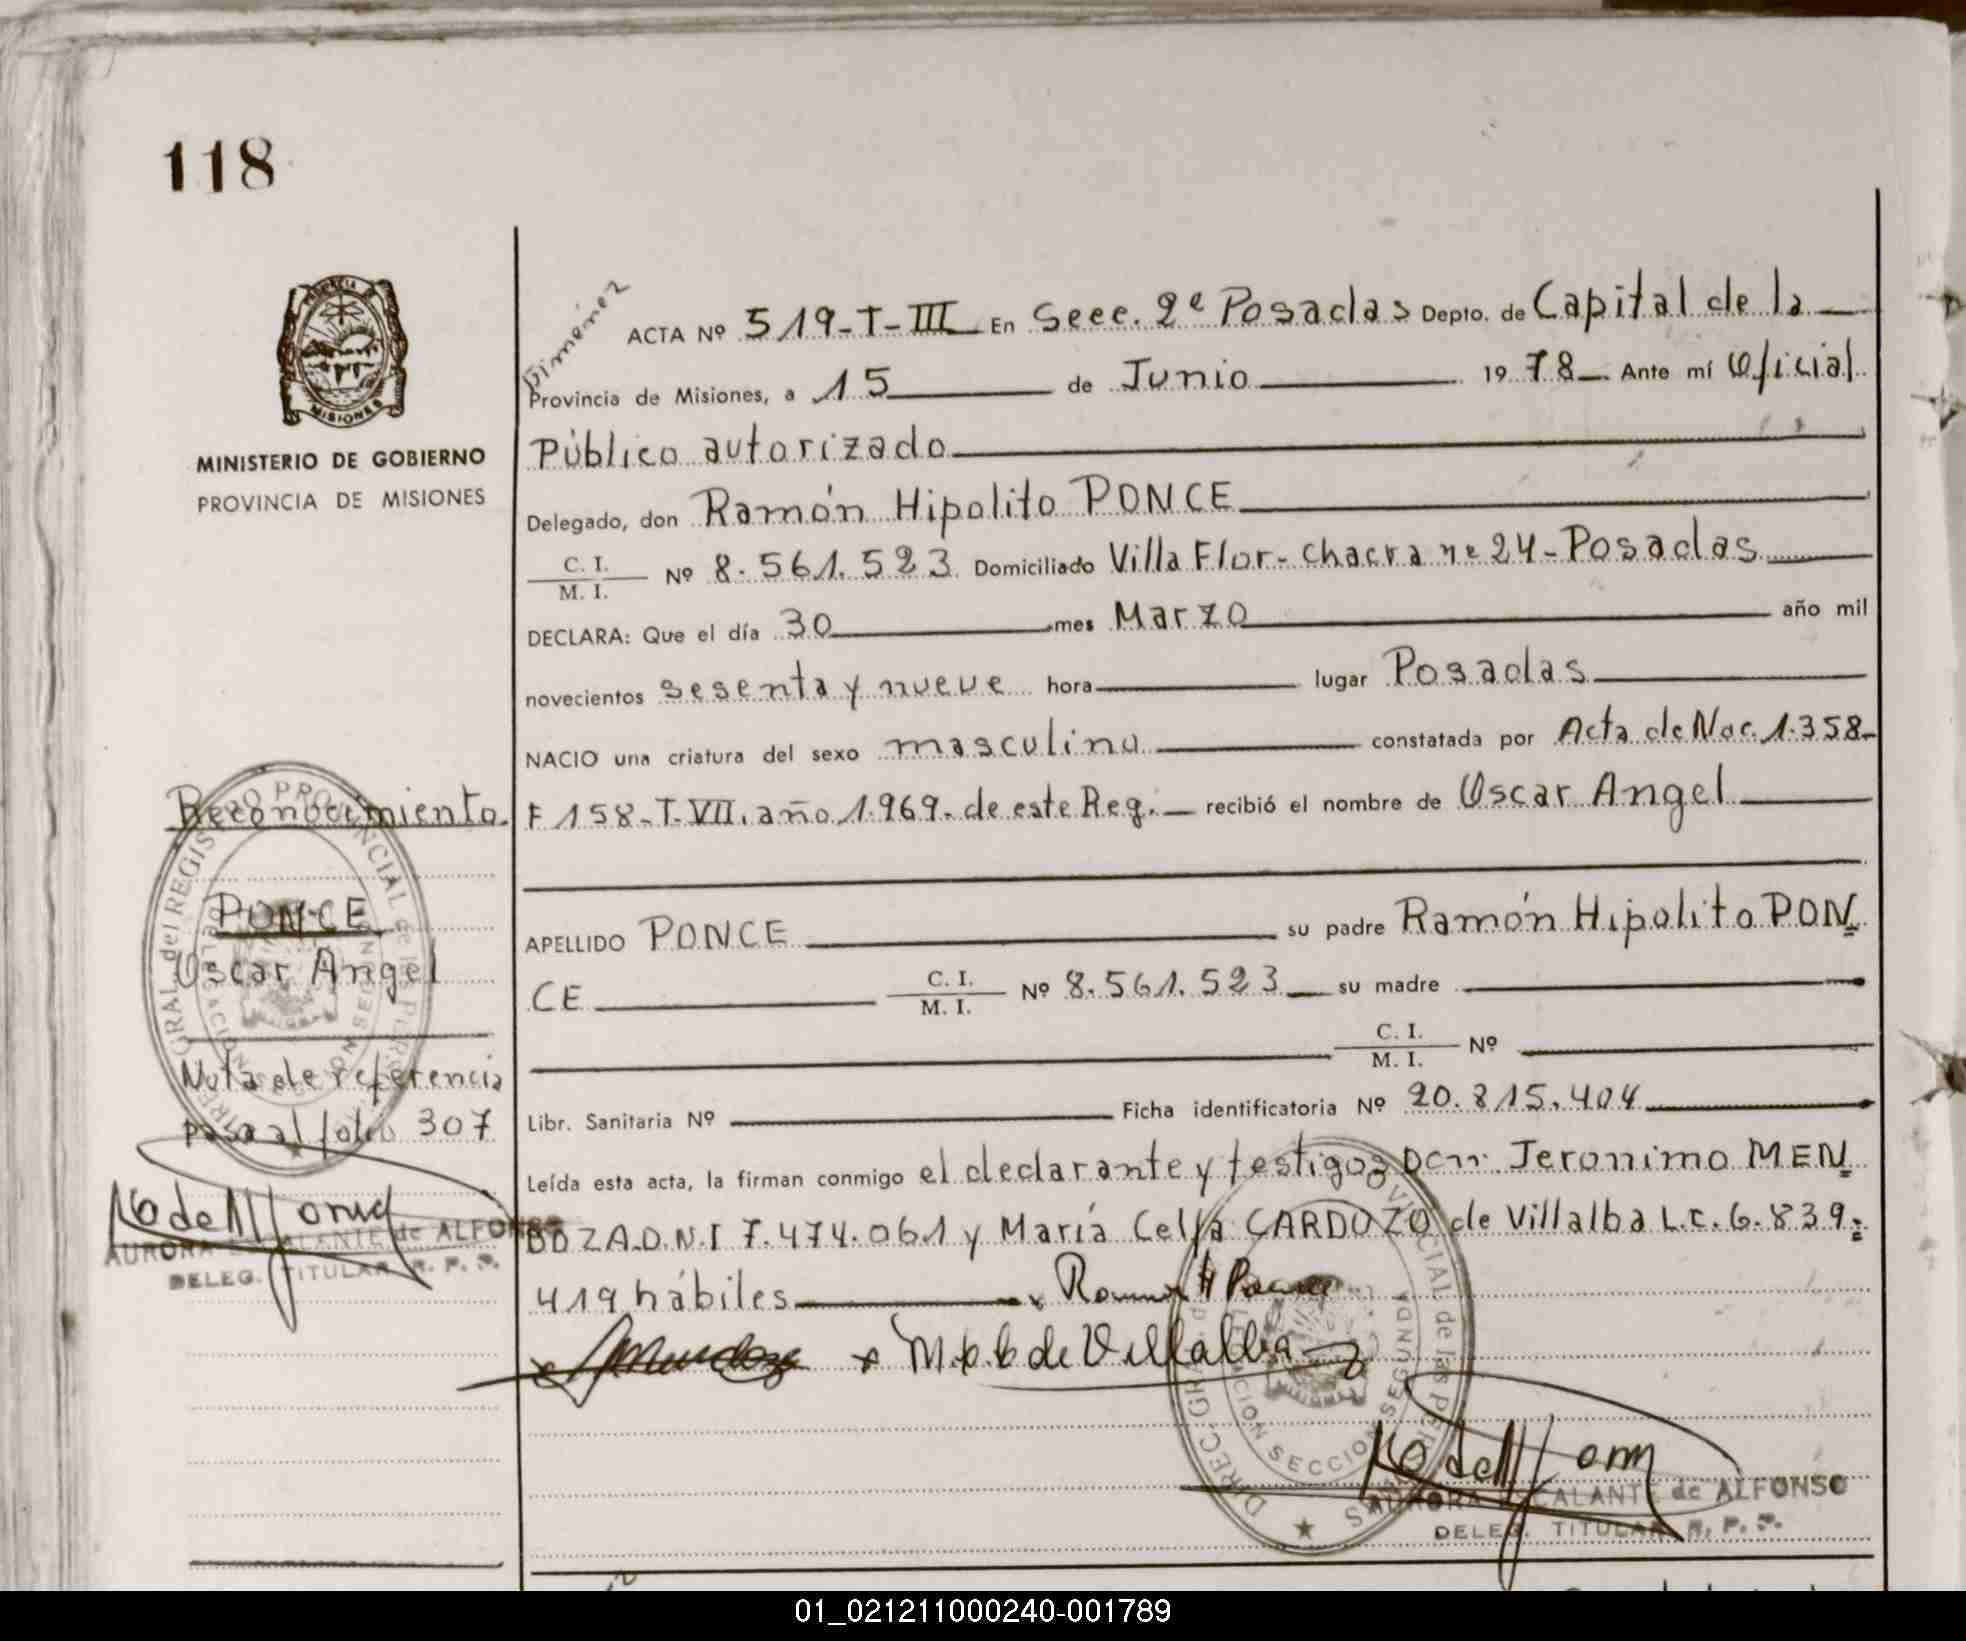 118
MINISTERIO DE GOBIERNO
PROVINCIA DE MISIONES
Reconocimiento.
PONCE
Oscar Angel
Nota de referencia
pasa al folio 307
AURORA ESCALANTE de ALFONSO
DELEG. TITULAR R. P. P.
Dimenez
ACTA Nº 519-T-III En Secc. 2ª Posadas Depto. de Capital de la
Provincia de Misiones, a 15 de Junio 1978 Ante mí Oficial
Público autorizado
Delegado, don Ramón Hipolito PONCE
C. I.
M. I. Nº 8.561.523 Domiciliado Villa Flor - Chacra nº 24 - Posadas
DECLARA: Que el día 30 mes Marzo año mil
novecientos sesenta y nueve hora lugar Posadas
NACIO una criatura del sexo masculino constatada por Acta de Nac. 1.358-
F 158-T-VII. año 1.969. de este Reg. recibió el nombre de Oscar Angel
APELLIDO PONCE su padre Ramón Hipolito PON
CE C. I.
M. I. Nº 8.561.523 su madre
C. I.
M. I. Nº
Libr. Sanitaria Nº Ficha identificatoria Nº 20.815.404
Leída esta acta, la firman conmigo el declarante y testigos Don: Jeronimo MEN
DOZA D.N.I 7.474.061 y María Celsa CARDOZO de Villalba L.C. 6.839.
419 hábiles Ramon H Ponce
Mendoza M. C. C de Villalba
DIREC. GRAL del REGISTRO PROVINCIAL de las PERSONAS
DELEGACION SECCION SEGUNDA
AURORA ESCALANTE de ALFONSO
DELEG. TITULAR R. P. P.
01_021211000240-001789